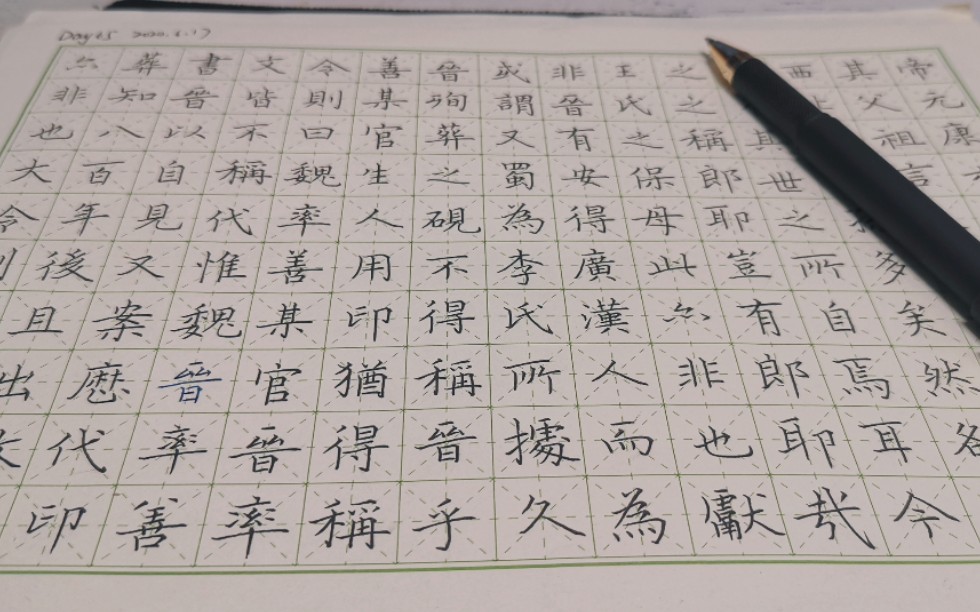 Day15 2020.6.17
帝元康
其父祖言
西多矣然
其世之所自焉耳今
之之稱郎耶豈有郎耶哉
王氏之保母此亦非也獻
非晉有安得廣漢人而為
或謂又蜀為李氏所據久
晉殉葬之硯不得稱晉乎
善某官生人用印猶得稱
令則曰魏率善某官晉率
文皆不稱代惟魏晉率善
書晉以自見又案歷代印
葬知八百年後且出
非也大今